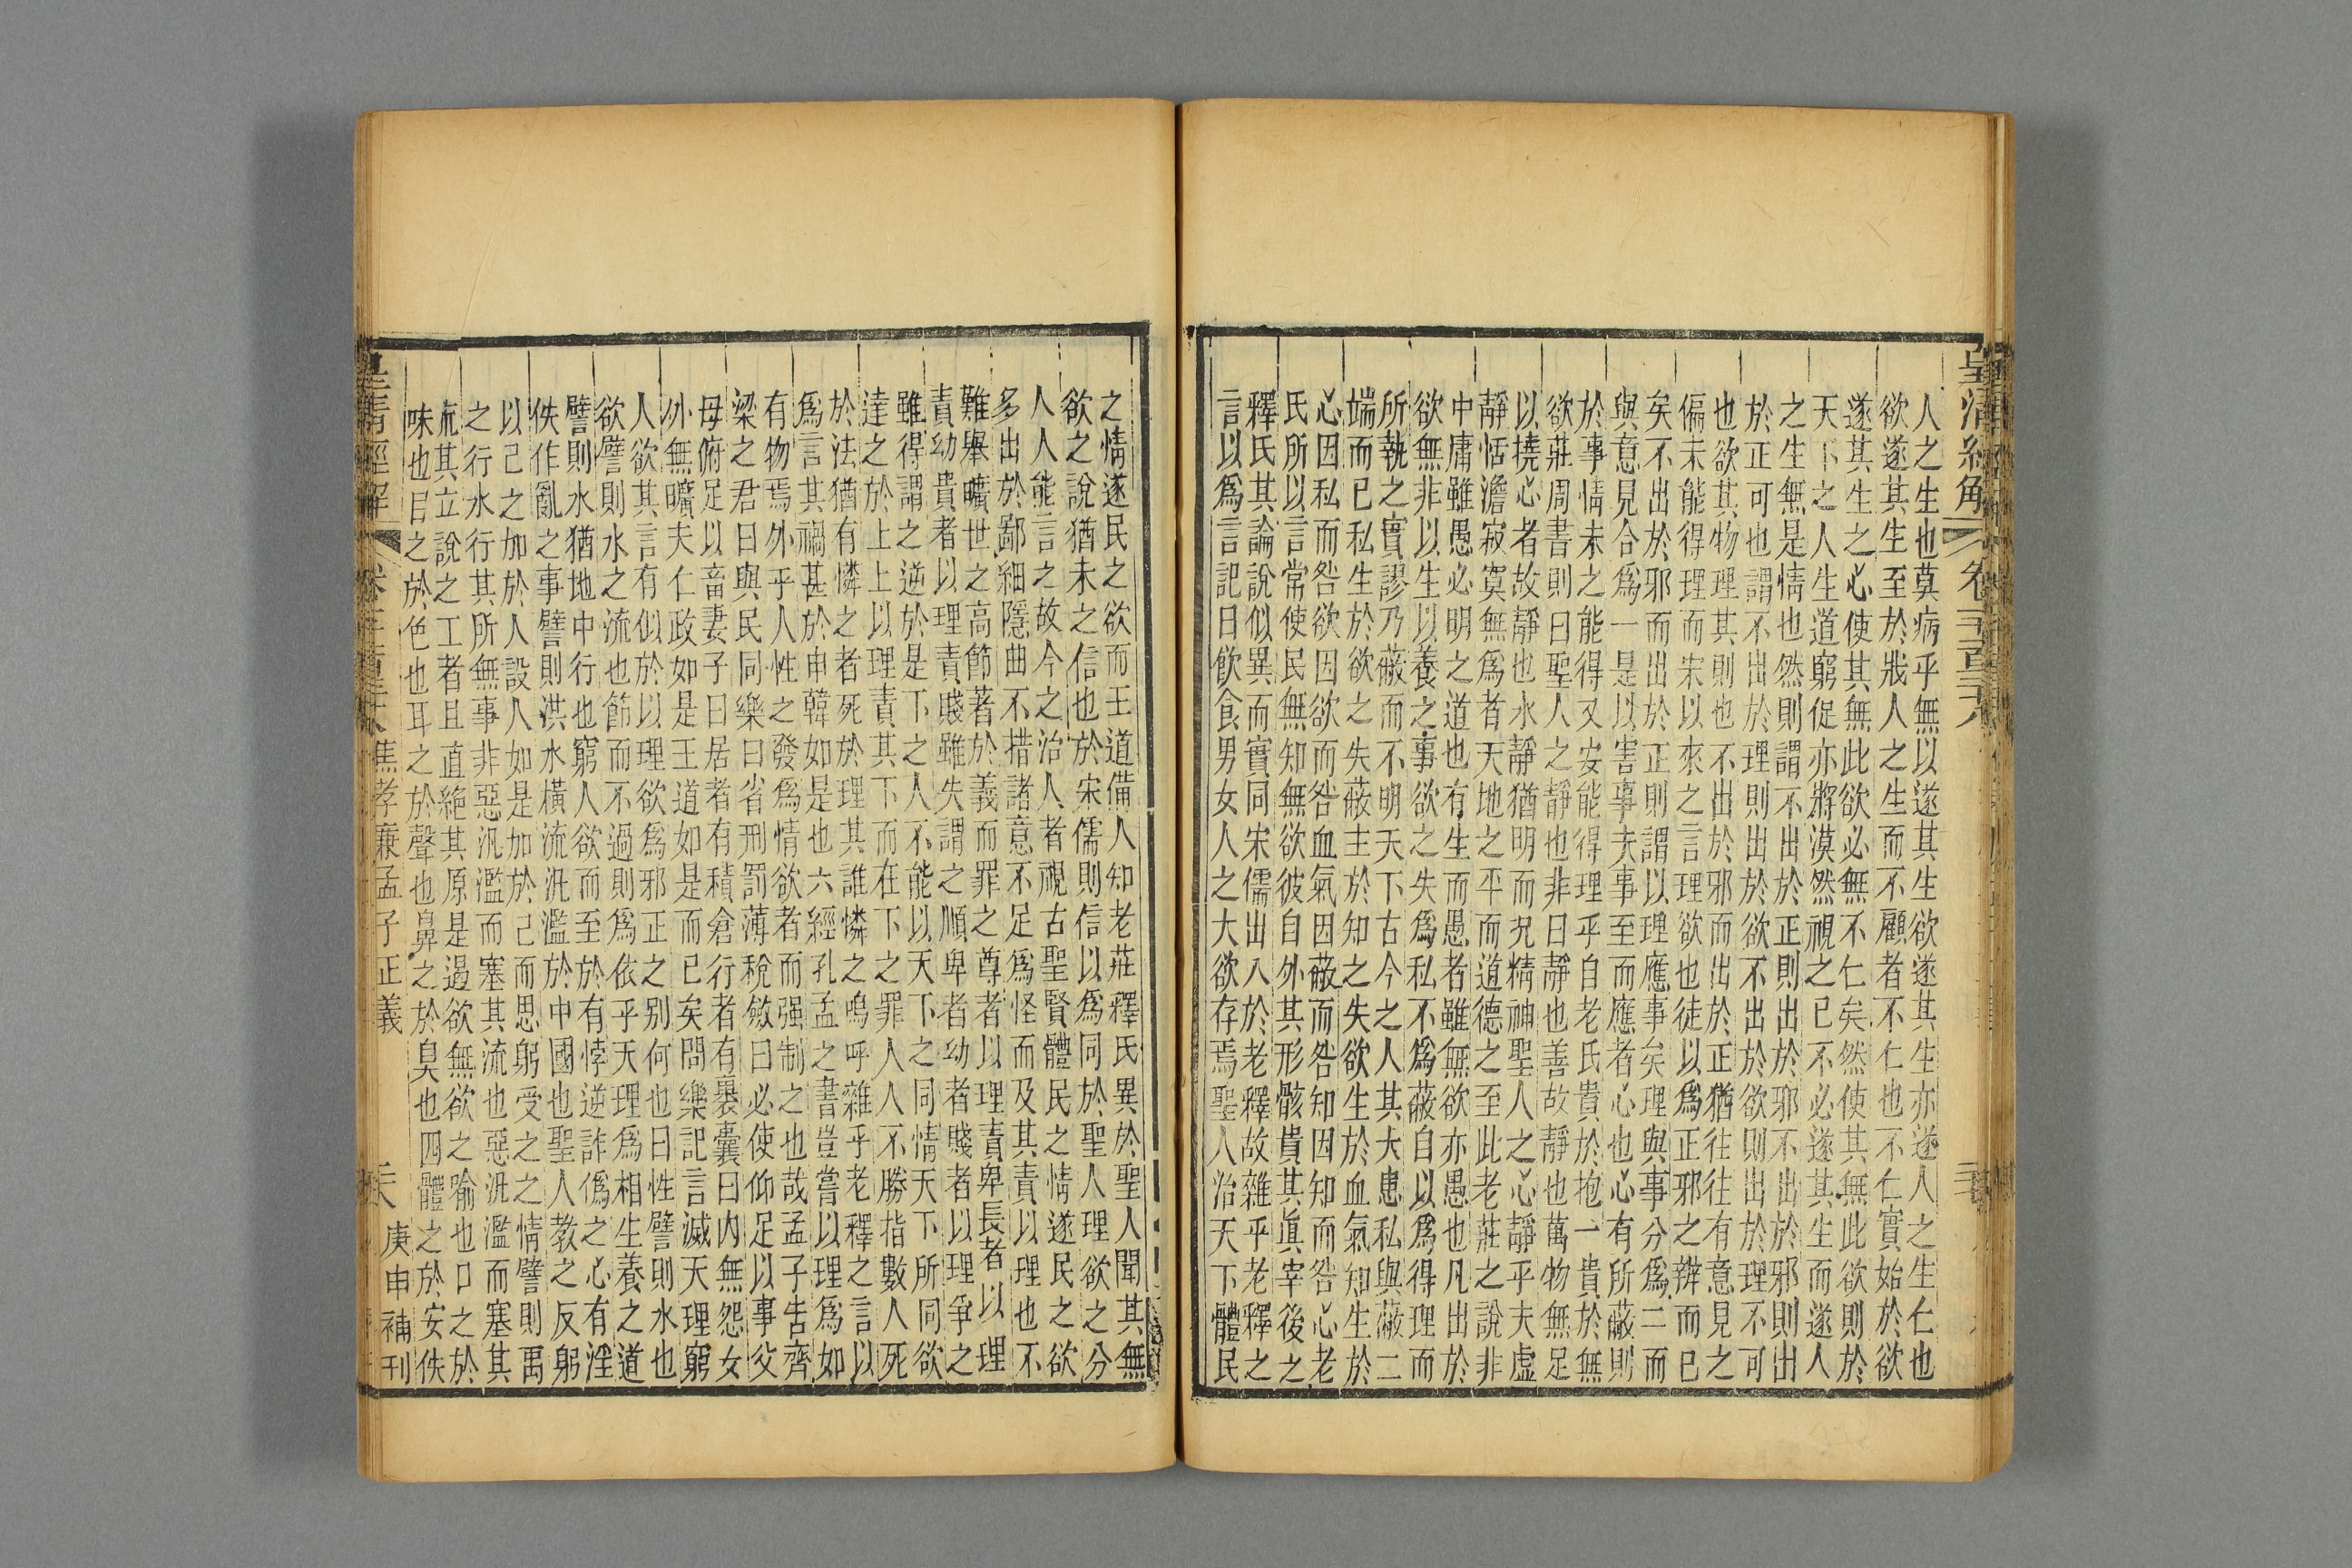 人之生也莫病乎無以遂其生欲遂其生亦遂人之生仁也
欲遂其生至於戕人之生而不顧者不仁也不仁實始於欲
遂其生之心使其無此欲必無不仁矣然使其無此欲則於
天下之人生道窮促亦將漠然視之已不必遂其生而遂人
之生無是情也然則謂不出於正則出於邪不出於邪則出
於正可也謂不出於理則出於欲不出於欲則出於理不可
也欲其物理其則也不出於邪而出於正猶往往有意見之
偏未能得理而宋以來之言理欲也徒以爲正邪之辨而已
矣不出於邪而出於正則謂以理應事矣理與事分爲二而
與意見合爲一是以害事夫事至而應者心也心有所蔽則
於事情未之能得又安能得理乎自老氏貴於抱一貴於無
欲莊周書則曰聖人之靜也非曰靜也善故靜也萬物無足
以撓心者故靜也水靜猶明而況精神聖人之心靜乎夫虛
靜恬澹寂寞無爲者天地之平而道德之至此老莊之說非
中庸雖愚必明之道也有生而愚者雖無欲亦愚也凡出於
欲無非以生以養之事欲之失爲私不爲蔽自以爲得理而
所執之實謬乃蔽而不明天下古今之人其大患私與蔽二
端而已私生於欲之失蔽主於知之失欲生於血氣知生於
心因私而咎欲因欲而咎血氣因蔽而咎知因知而咎心老
氏所以言常使民無知無欲彼自外其形骸貴其眞宰後之
釋氏其論說似異而實同宋儒出入於老釋故雜乎老釋之
言以爲言記曰飲食男女人之大欲存焉聖人治天下體民
之情遂民之欲而王道備人知老莊釋氏異於聖人聞其無
欲之說猶未之信也於宋儒則信以爲同於聖人理欲之分
人人能言之故今之治人者視古聖賢體民之情遂民之欲
多出於鄙細隱曲不措諸意不足爲怪而及其責以理也不
難舉曠世之高節著於義而罪之尊者以理責卑長者以理
責幼貴者以理責賤雖失謂之順卑者幼者賤者以理爭之
雖得謂之逆於是下之人不能以天下之同情天下所同欲
達之於上上以理責其下而在下之罪人人不勝指數人死
於法猶有憐之者死於理其誰憐之嗚呼雜乎老釋之言以
爲言其禍甚於申韓如是也六經孔孟之書豈嘗以理爲如
有物焉外乎人性之發爲情欲者而强制之也哉孟子告齊
梁之君曰與民同樂曰省刑罰薄稅斂曰必使仰足以事父
母俯足以畜妻子曰居者有積倉行者有裹囊曰內無怨女
外無曠夫仁政如是王道如是而已矣問樂記言滅天理窮
人欲其言有似於以理欲爲邪正之別何也曰性譬則水也
欲譬則水之流也節而不過則爲依乎天理爲相生養之道
譬則水猶地中行也窮人欲而至於有悖逆詐僞之心有淫
佚作亂之事譬則洪水橫流汎濫於中國也聖人教之反躬
以己之加於人設人如是加於己而思躬受之之情譬則禹
之行水行其所無事非惡汎濫而塞其流也惡汎濫而塞其
流其立說之工者且直絶其原是遏欲無欲之喻也口之於
味也目之於色也耳之於聲也鼻之於臭也四體之於安佚
皇清經解 焦孝廉孟子正義 庚申補刊